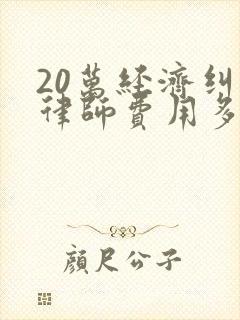 20萬經濟糾
律師費用多
顏尺公子